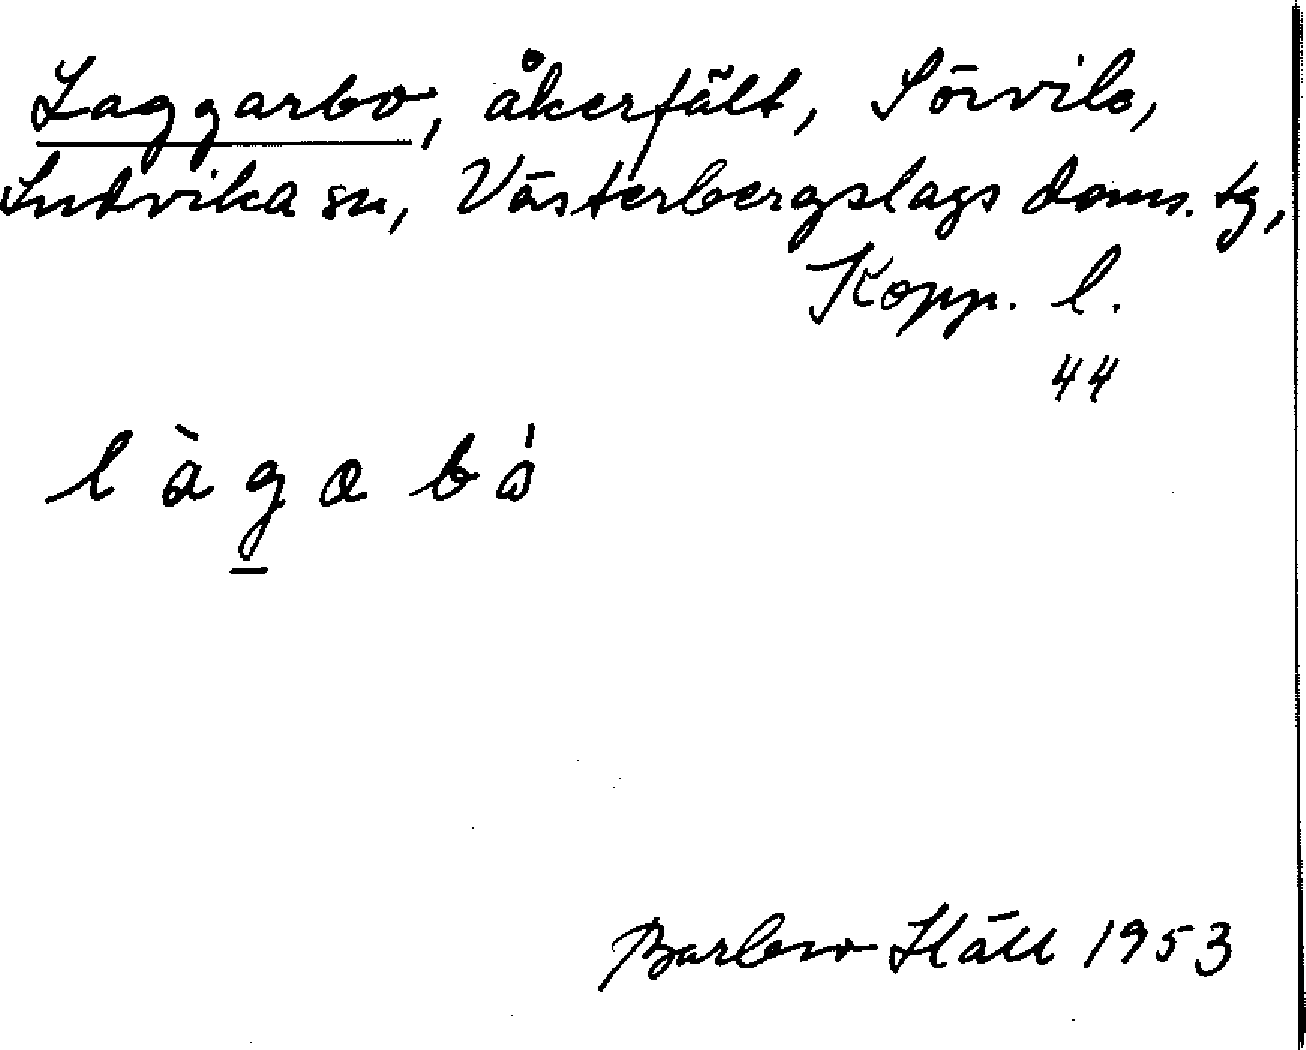 Laggarbo, åkerfält, Sörvik,
Ludvika sn, Västerbergslags doms. tg,
Kopp. l.
44
làgabó
Häll 1953